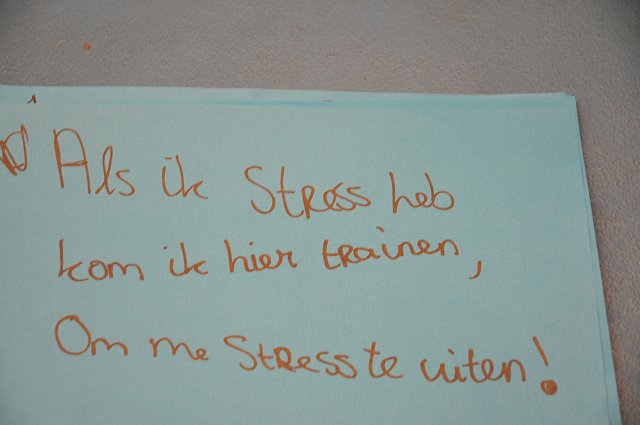 Als ik Stress heb
kom ik hier trainen,
Om me Stress te uiten!